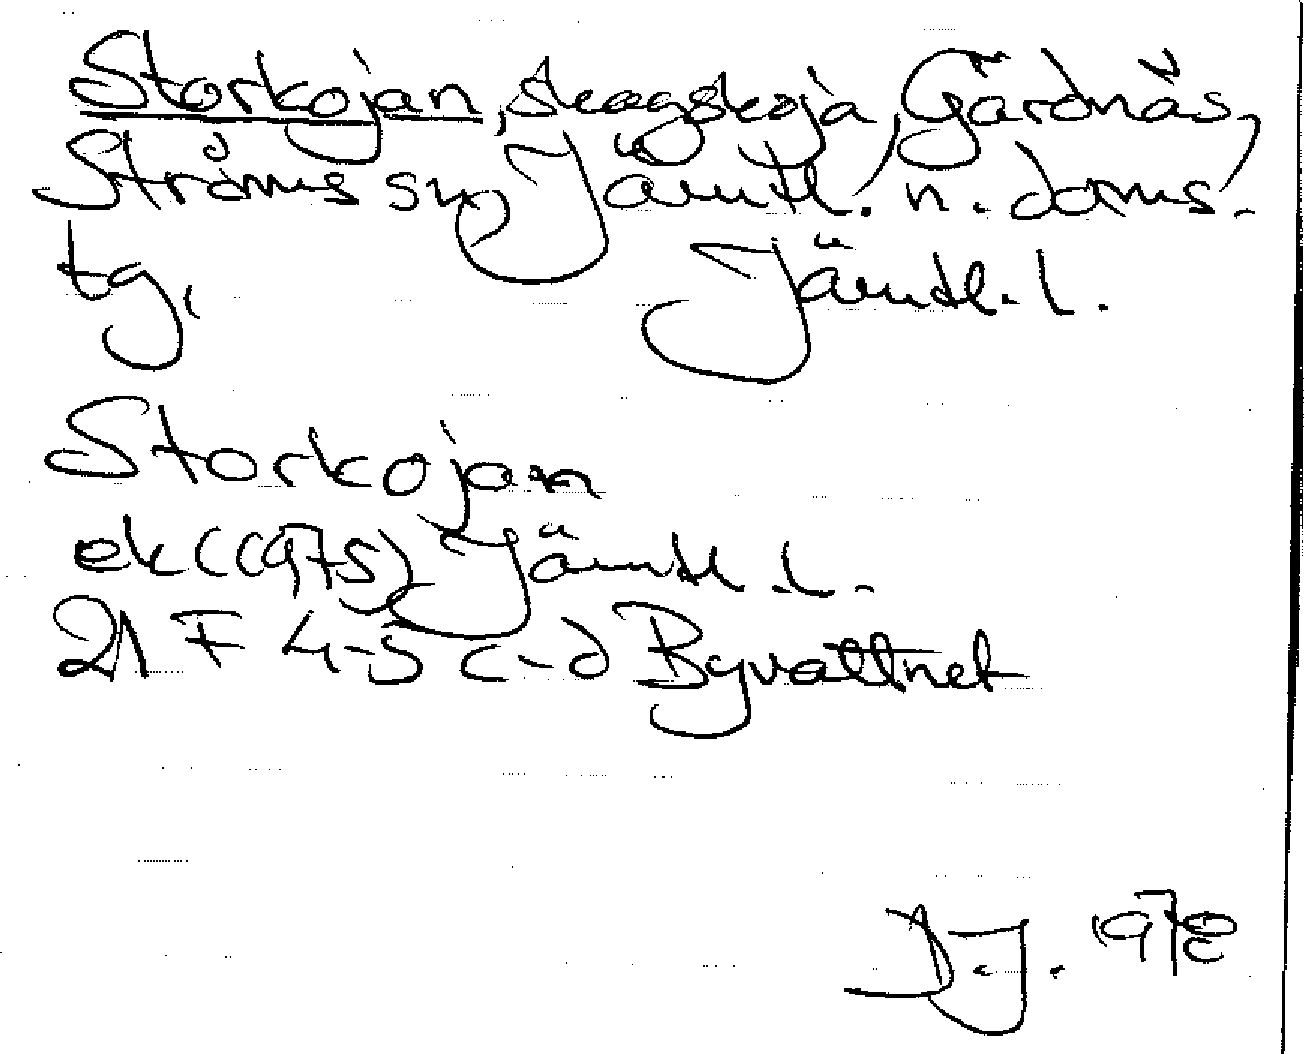 Storkojan, skogskoja, Gärdnäs,
Ströms sn, Jämtl. n. doms.
tg, Jämtl. l.
Storkojan
ek (1975) Jämtl l.
21 F 4-5 c-d Byvattnet
1978